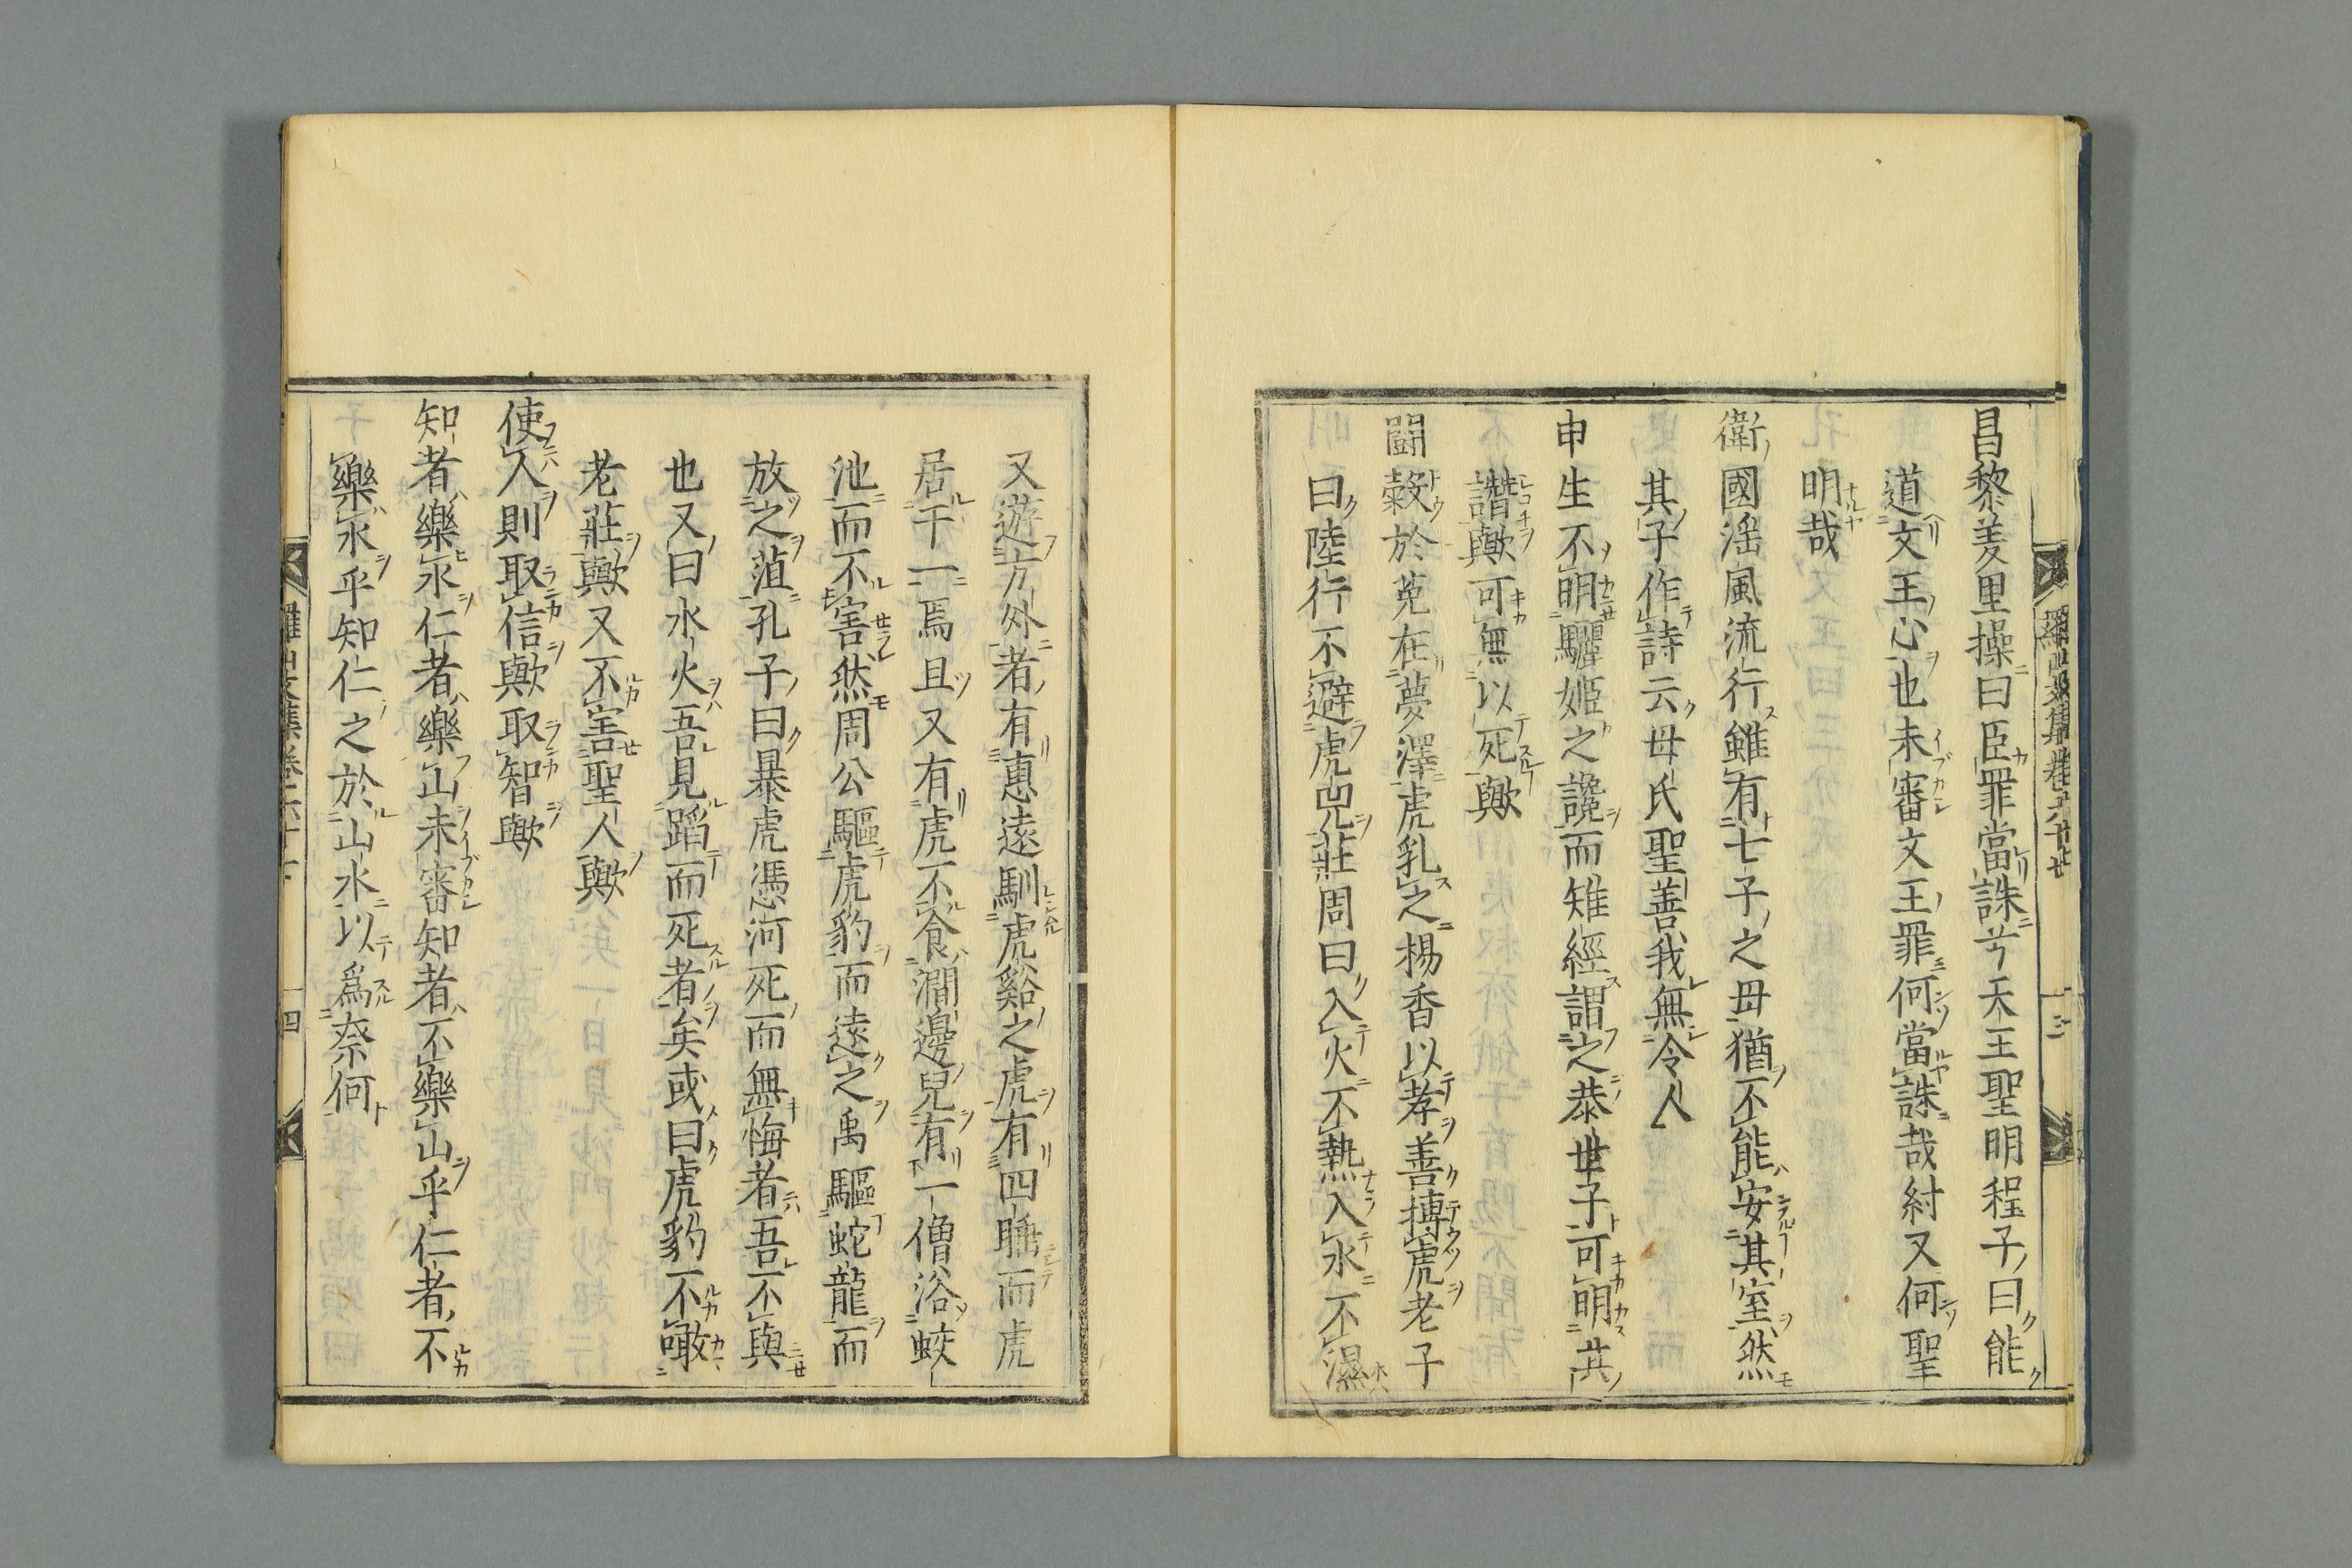 昌黎羑里操曰臣罪當誅兮天王聖明程子曰能
道文王心也未審文王罪何當誅哉紂又何聖
明哉
衛國淫風流行雖有七子之母猶不能安其室然
其子作詩云母氏聖善我無令人
申生不明驪姬之讒而雉經謂之恭世子可明共
譖歟可無以死歟
鬭穀於菟在夢澤虎乳之楊香以孝善搏虎老子
曰陸行不避虎兕莊周曰入火不熱入水不濕
又遊方外者有惠遠馴虎谿之虎有四睡而虎
居于一焉且又有虎不食澗邊兒有一僧浴蛟
池而不害然周公驅虎豹而遠之禹驅蛇龍而
放之菹孔子曰暴虎馮河死而無悔者吾不與
也又曰水火吾見蹈而死者矣或曰虎豹不噉
老莊歟又不害聖人歟
使人則取信歟取智歟
知者樂水仁者樂山未審知者不樂山乎仁者不
樂水乎知仁之於山水以爲奈何